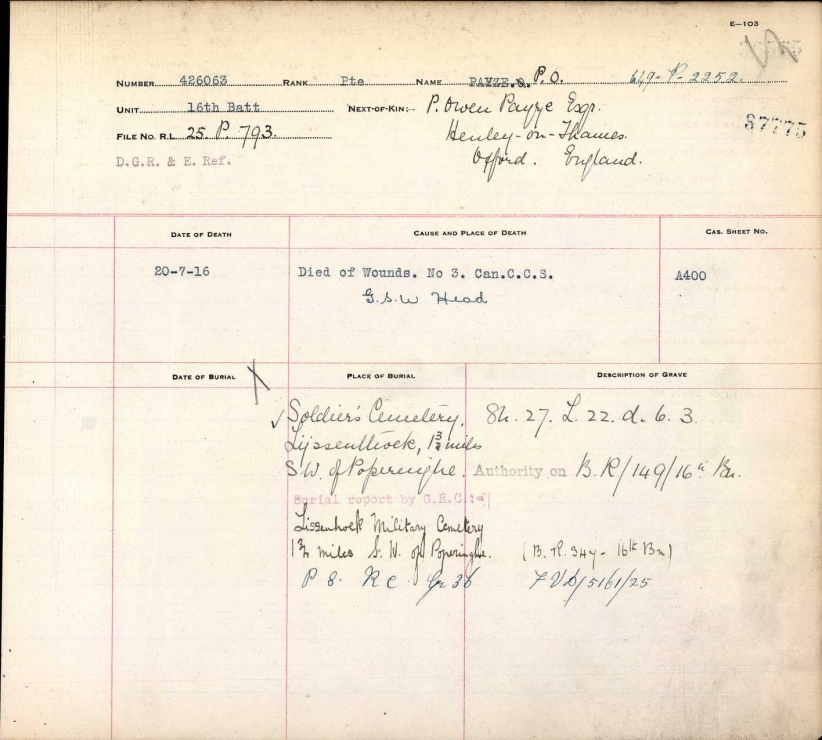 E—103
NUMBER 426063 RANK Pte NAME PAYZE. P.O. 649-P-2252.
UNIT 16th Batt NEXT-OF-KIN:- P. Owen Payze Esqr.
FILE NO. R.L. 25. P. 793. Henley-on-Thames. 37775
D.G.R. & E. Ref. Oxford. England.
DATE OF DEATH CAUSE AND PLACE OF DEATH CAS. SHEET NO.
20-7-16 Died of Wounds. No 3. Can.C.C.S. A400
G.S.W Head
DATE OF BURIAL PLACE OF BURIAL DESCRIPTION OF GRAVE
Soldier's Cemetery, Sh. 27. L. 22. d. 6. 3.
Lijssenthoek, 1¾ miles
S.W. of Poperinghe. Authority on B.R/149/16th Bn.
Burial report by G.R.C.:-
Lissenhoek Military Cemetery
1¾ miles S. W. of Poperinghe. (B.R. 347- 16th Bn)
P 8. R C Gr 3b 5161/25